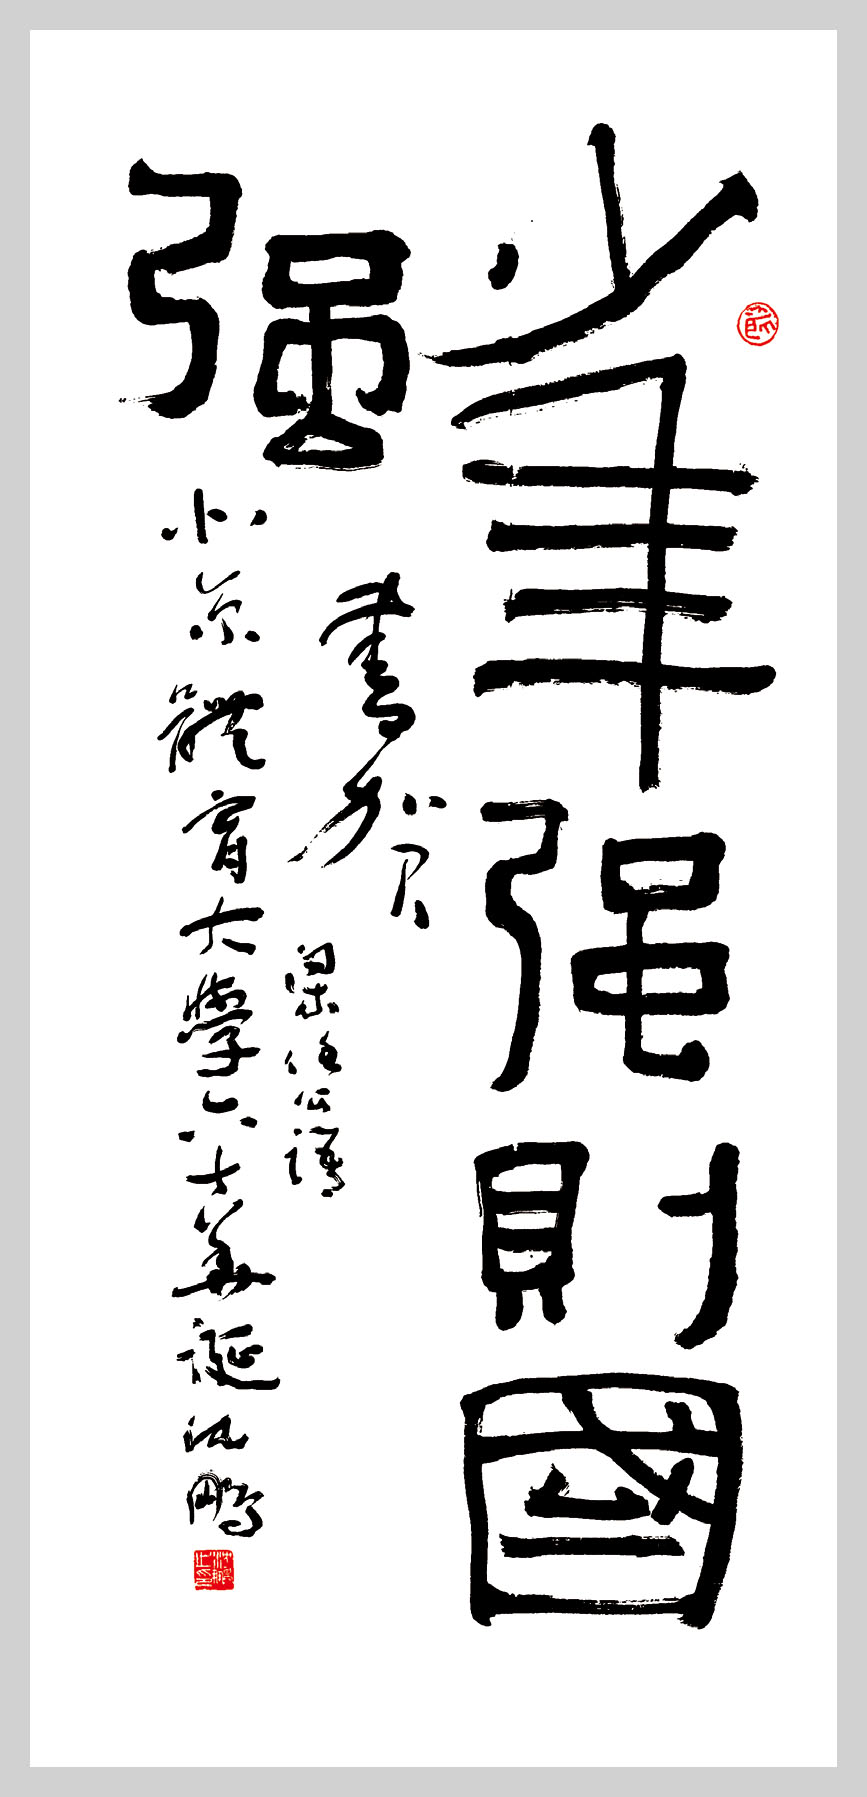 少年强則國
强
書賀
梁任公語
北京體育大學六十華誕沈鵬